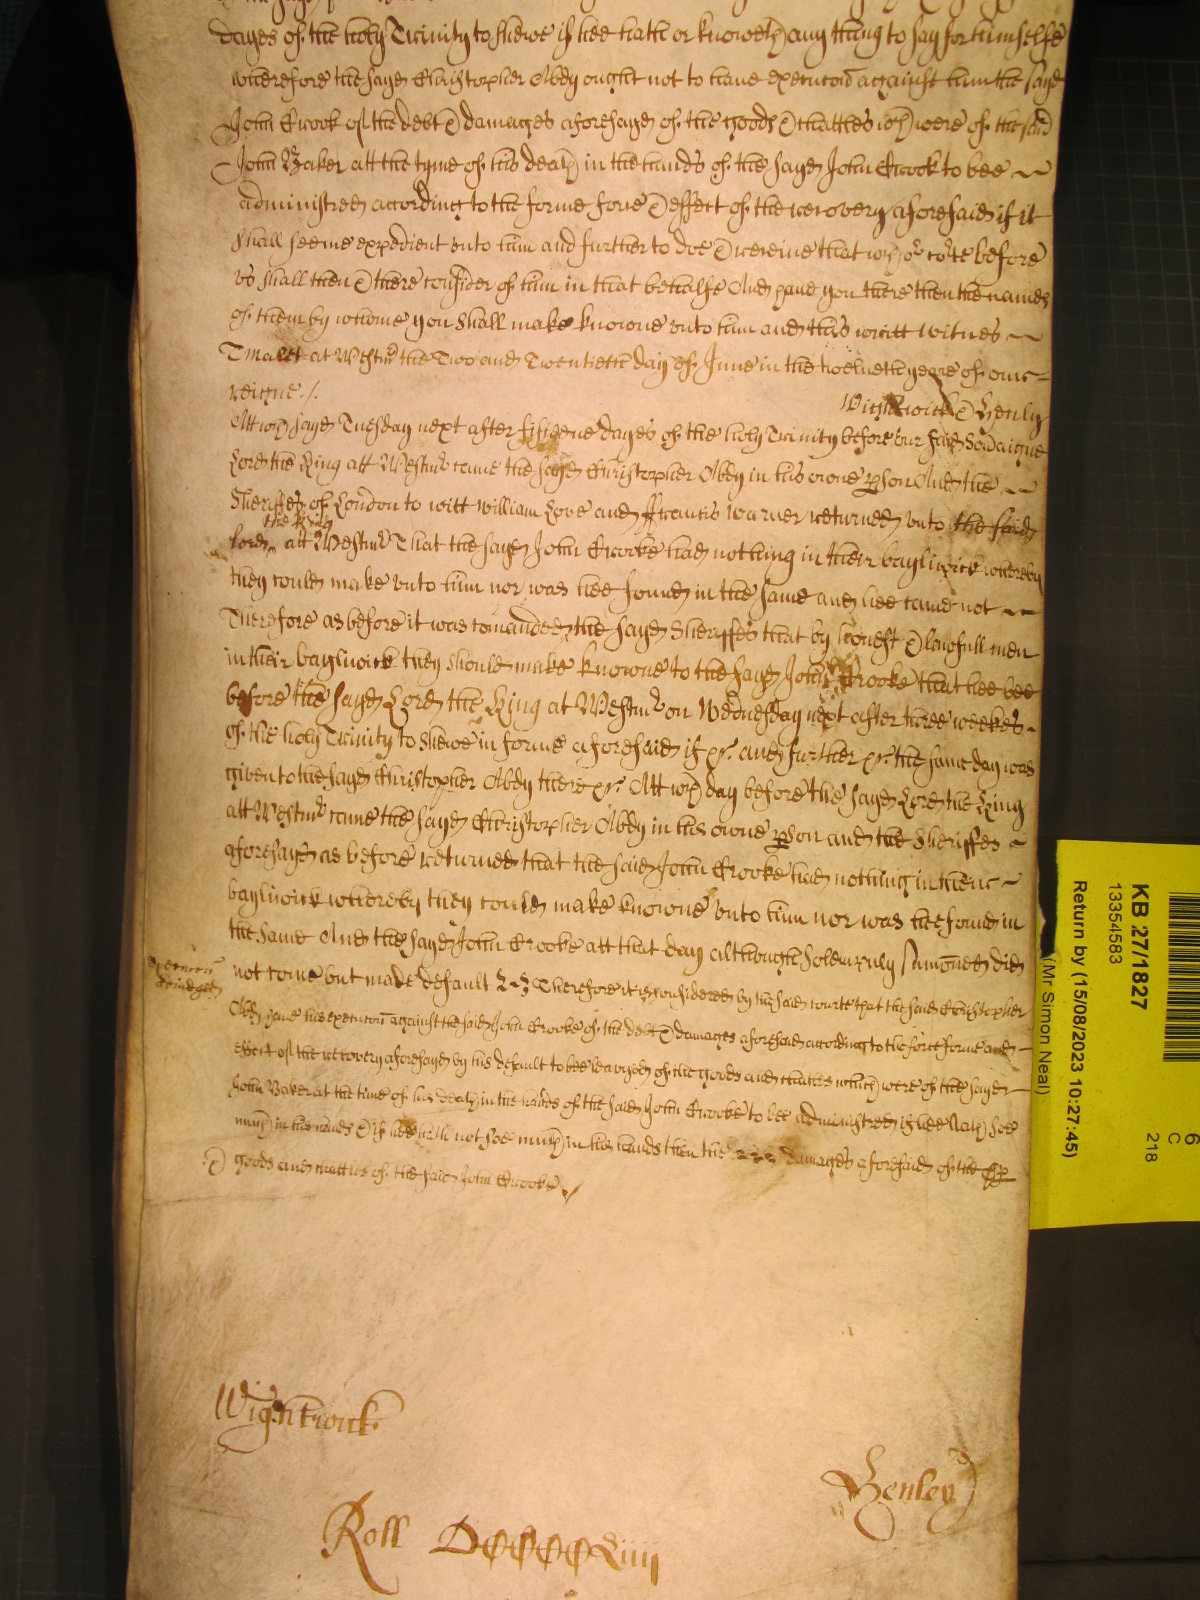 dayes of the holy Trinity to shewe if hee hath or knoweth any thing to say for himselfe
wherefore the sayd Christopher Abdy ought not to have execucon against him the sayd
John Crook of the debt & damages aforesayd of the goods & chattles wch were of the said
John Baker att the tyme of his death in the hands of the sayd John Crook to bee
administred according to the forme force & effect of the recovery aforesaid if it
shall seeme expedient unto him and further to doe & receive that wch or corte before
us shall then & there consider of him in that behalfe And have you there then the names
of them by whome you shall make knowne unto him and this writt Witnes
T Malet at Westmr the Two and Twentieth day of June in the twelueth yeare of our
reigne /.
Wightwick & Henly
Att wch sayd Tuesday next after fifteene dayes of the holy Trinity before our said Soveraigne
Lord the King att Westmr came the sayd Christopher Abdy in his owne pson And the
Sheriffes of London to witt William Love and ffrancis Warner returned unto the said
the King
lord att Westmr That the sayd John Crooke had nothing in their bayliwick whereby
they could make unto him nor was hee found in the same and hee came not
Therefore as before it was comanded the sayd Sheriffes that by honest & lawfull men
in their bayliwick they should make knowne to the sayd John Crooke that hee bee
before the sayd Lord the King at Westmr on Wednesday next after three weekes
of the holy Trinity to shewe in forme aforesaid if &c. and further &c. the same day was
given to the sayd Christopher Abdy there &c. Att wch day before the sayd Lord the King
att Westmr came the sayd Christopher Abdy in his owne pson and the Sheriffes
aforesayd as before returned that the said John Crooke had nothing in their
bayliwick whereby they could make knowne unto him nor was hee found in
the same And the sayd John Crooke att that day although solempnly sumoned did
not come but made default Therefore it is considered by the said courte that the said Christopher
Abdy have his execucon against the said John Crooke of the debt & damages aforesaid according to the force forme and
effect of the recovery aforesayd by his default to bee leavyed of the goods and chattles which were of the sayd
John Baker at the time of his death in the hands of the said John Crooke to bee administred if hee hath soe
much in his hands & if hee hath not soe much in his hands then the damages aforesaid of the pp
goods and chattles of the said John Crooke
Wightwick
Henley
Roll DCCCCLiiii
KB 27/1827
13354583
Return by (15/08/2023 10:27:45)
(Mr Simon Neal)
6
C
218